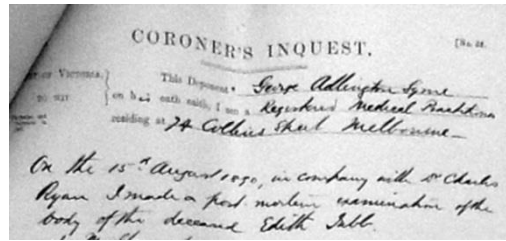 CORONER'S INQUEST.
[No. 28.
OF VICTORIA,
TO WIT
This Deponent, George Adlington Syme
on his oath saith, I am a Registered Medical Practitioner
residing at 74 Collins Street Melbourne
On the 15th August 1890, in company with Dr Charles
Ryan I made a post mortem examination of the
body of the deceased Edith